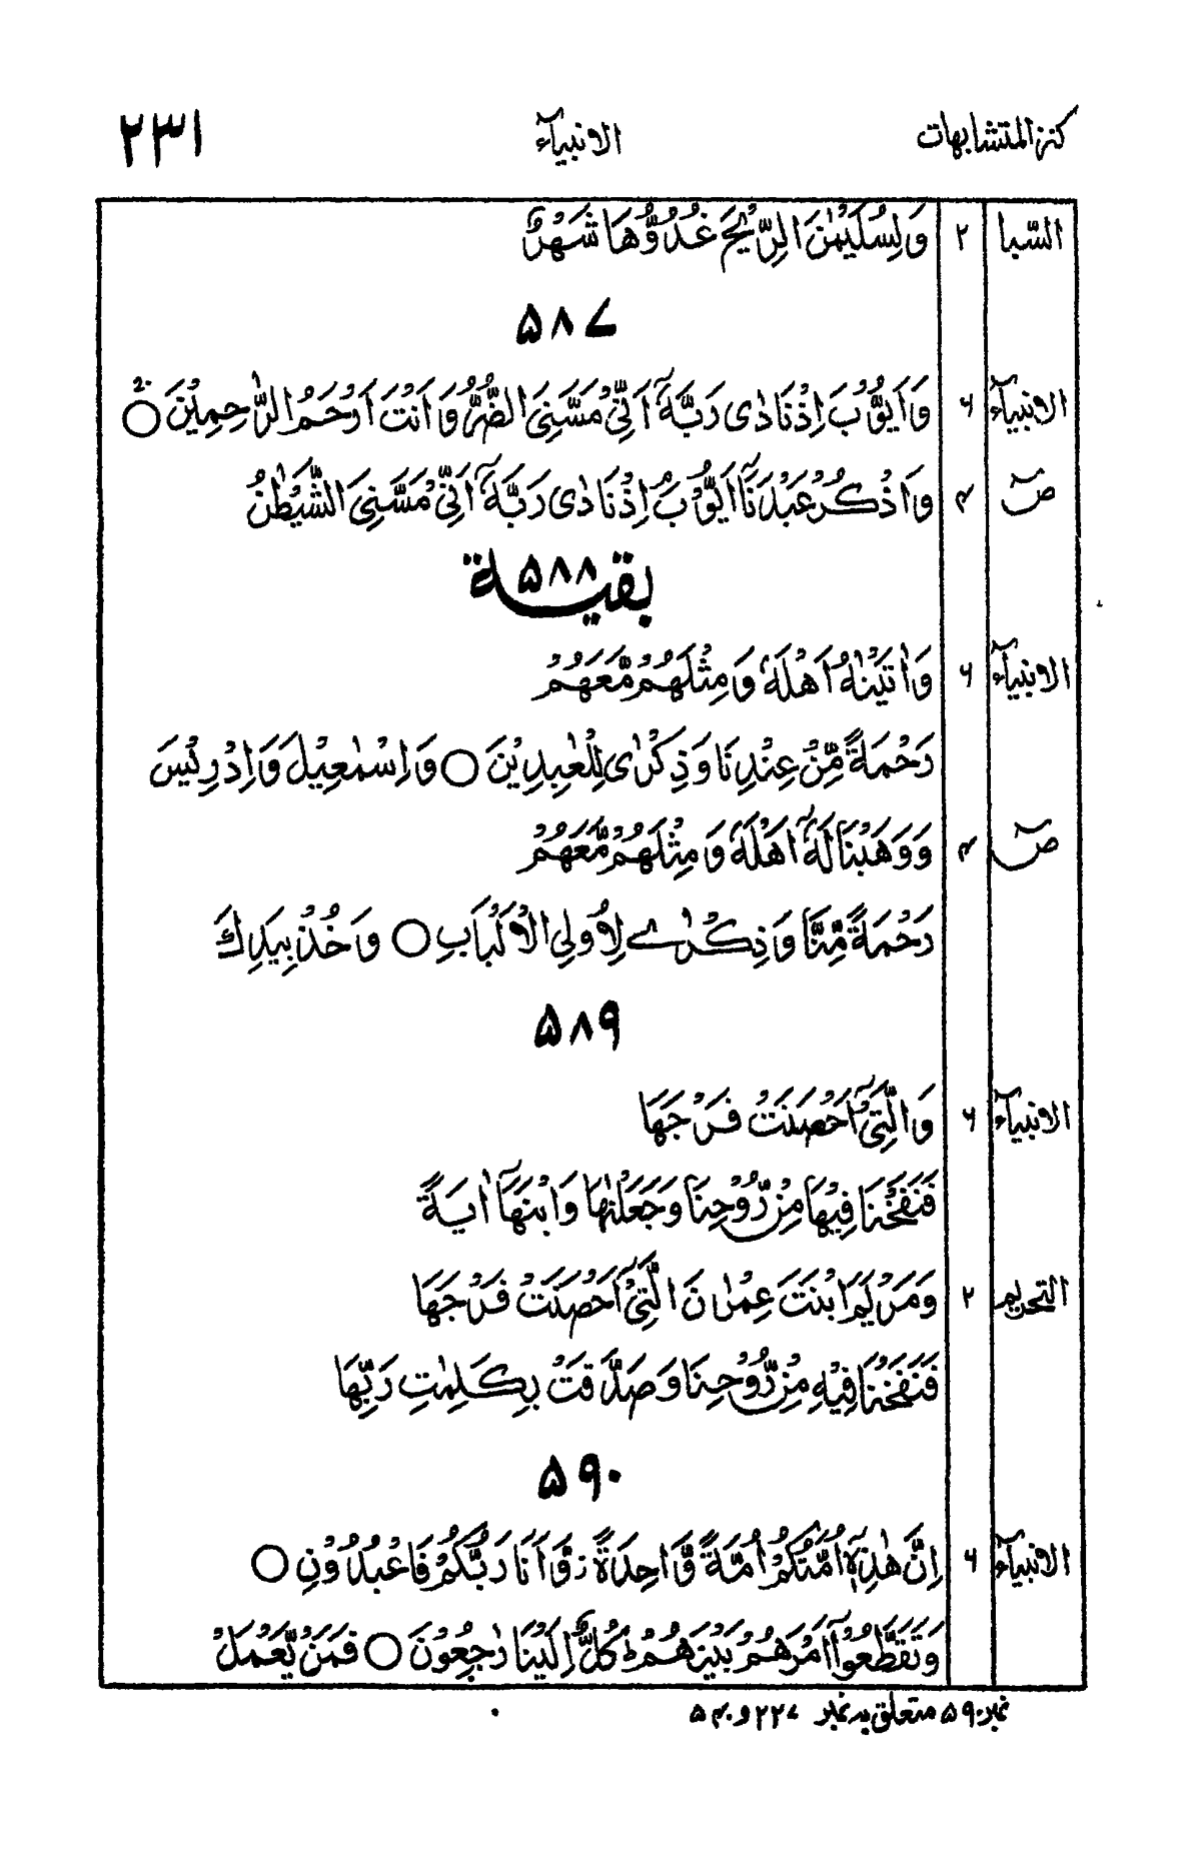 كنز المتشابهات الانبيآء ۲۳۱
السّبا ۲ وَلِسُلَيْمٰنَ الرِّيْحَ غُدُوُّهَا شَهْرٌ
۵۸۷
الانبيآء ۶ وَاَيُّوْبَ اِذْ نَادٰى رَبَّهٗٓ اَنِّىْ مَسَّنِىَ الضُّرُّ وَاَنْتَ اَرْحَمُ الرّٰحِمِيْنَ ○
صٓ ۴ وَاذْكُرْ عَبْدَنَآ اَيُّوْبَ اِذْ نَادٰى رَبَّهٗٓ اَنِّىْ مَسَّنِىَ الشَّيْطٰنُ
بقية ۵۸۸
الانبيآء ۶ وَاٰتَيْنٰهُ اَهْلَهٗ وَمِثْلَهُمْ مَّعَهُمْ
رَحْمَةً مِّنْ عِنْدِنَا وَذِكْرٰى لِلْعٰبِدِيْنَ ○ وَاِسْمٰعِيْلَ وَاِدْرِيْسَ
صٓ ۴ وَوَهَبْنَا لَهٗٓ اَهْلَهٗ وَمِثْلَهُمْ مَّعَهُمْ
رَحْمَةً مِّنَّا وَذِكْرٰى لِاُولِى الْاَلْبَابِ ○ وَخُذْ بِيَدِكَ
۵۸۹
الانبيآء ۶ وَالَّتِىْٓ اَحْصَنَتْ فَرْجَهَا
فَنَفَخْنَا فِيْهَا مِنْ رُّوْحِنَا وَجَعَلْنٰهَا وَابْنَهَآ اٰيَةً
التحريم ۲ وَمَرْيَمَ ابْنَتَ عِمْرٰنَ الَّتِىْٓ اَحْصَنَتْ فَرْجَهَا
فَنَفَخْنَا فِيْهِ مِنْ رُّوْحِنَا وَصَدَّقَتْ بِكَلِمٰتِ رَبِّهَا
۵۹۰
الانبيآء ۶ اِنَّ هٰذِهٖٓ اُمَّتُكُمْ اُمَّةً وَّاحِدَةً ز وَّاَنَا رَبُّكُمْ فَاعْبُدُوْنِ ○
وَتَقَطَّعُوْٓا اَمْرَهُمْ بَيْنَهُمْ ط كُلٌّ اِلَيْنَا رٰجِعُوْنَ ○ فَمَنْ يَّعْمَلْ
نمبر ۵۹۰ متعلق بہ نمبر ۲۲۷ و ۵۰۴